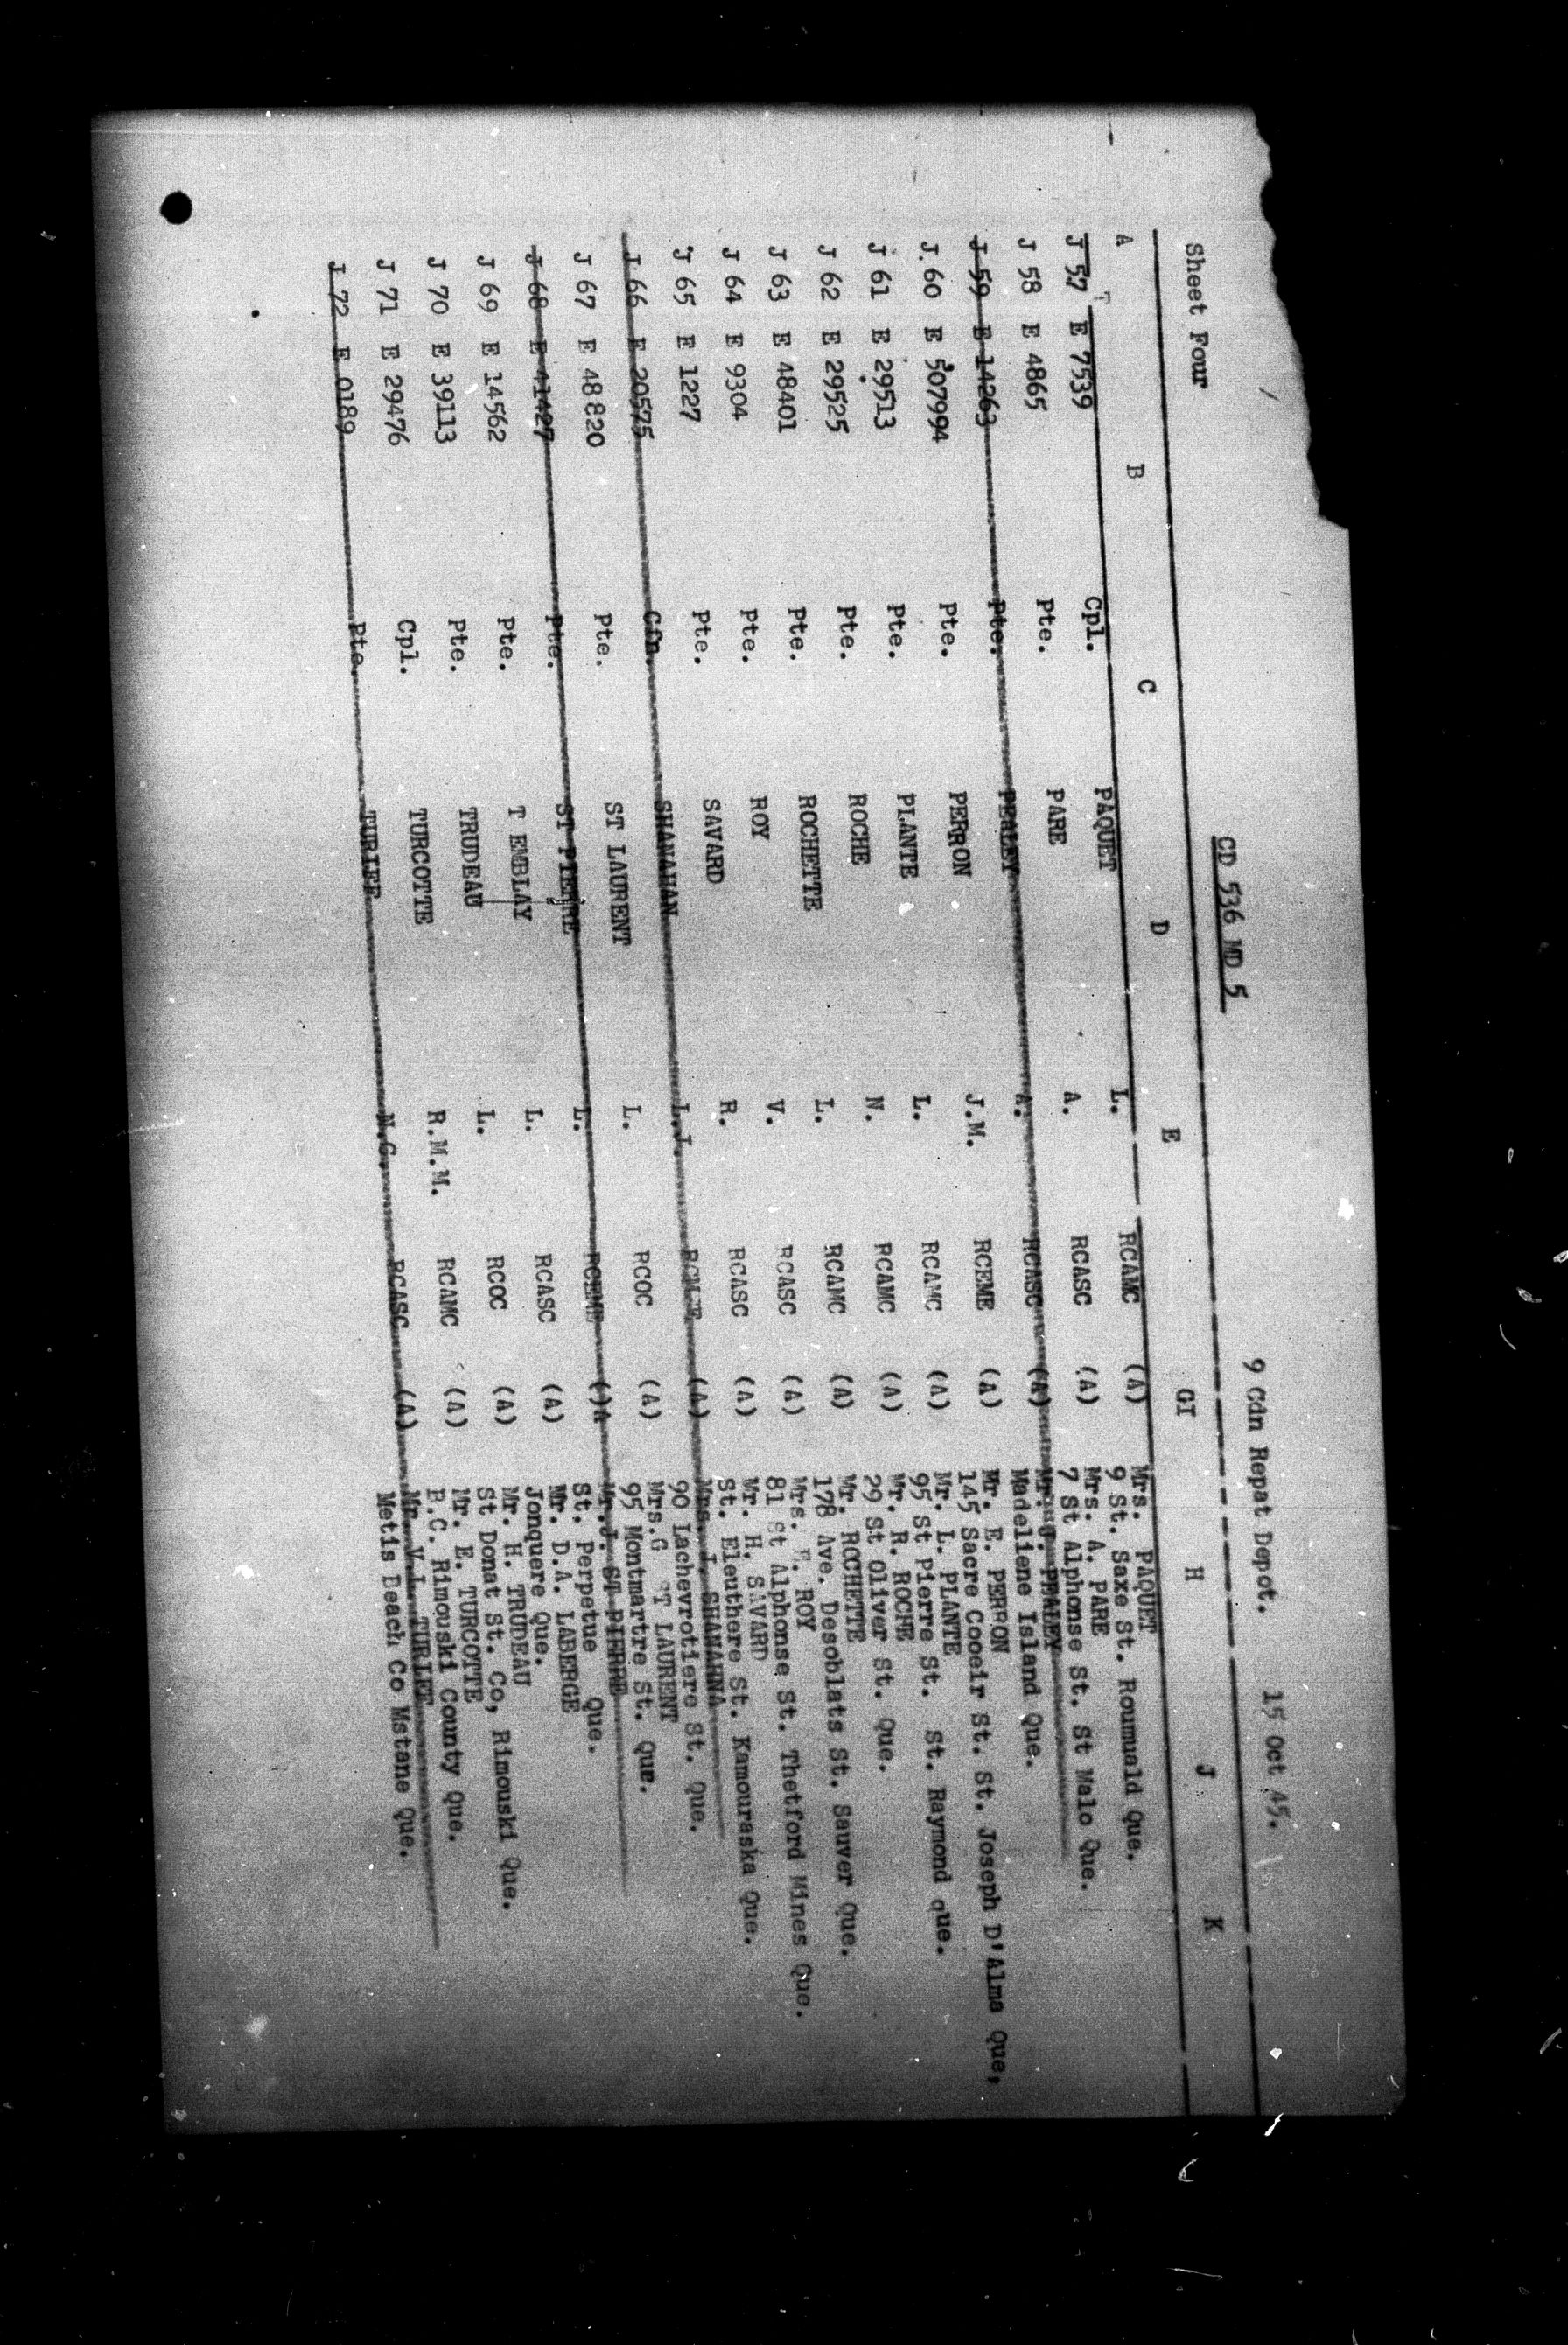 Sheet Four CD 536 MD 5 9 Cdn Repat Depot. 15 Oct 45.
A B C D E GI H J K
J 57 E 7539 Cpl. PAQUET L. RCAMC (A) Mrs. PAQUET
9 St. Saxe St. Roumuald Que.
J 58 E 4865 Pte. PARE A. RCASC (A) Mrs. A. PARE
7 St Alphonse St. St Malo Que.
J 59 E 14263 Pte. PEALEY A. RCASC (A) Mr. J. PEALEY
Madeliene Island Que.
J.60 E 507994 Pte. PERRON J.M. RCEME (A) Mr. E. PERRON
145 Sacre Cooeir St. St. Joseph D'Alma Que,
J 61 E 29513 Pte. PLANTE L. RCAMC (A) Mr. L. PLANTE
95 St Pierre St. St. Raymond que.
J 62 E 29525 Pte. ROCHE N. RCAMC (A) Mr. R. ROCHE
29 St Oliver St. Que.
J 63 E 48401 Pte. ROCHETTE L. RCAMC (A) Mr. ROCHETTE
178 Ave. Desoblats St. Sauver Que.
J 64 E 9304 Pte. ROY V. RCASC (A) Mrs. ROY
81 St Alphonse St. Thetford Mines Que.
J 65 E 1227 Pte. SAVARD R. RCASC (A) Mr. H. SAVARD
St. Eleuthere St. Kamouraska Que.
J 66 E 20575 Cfn. SHANAHAN L.J. (A) Mrs. I. SHANAHNA
90 Lachevrotiere St. Que.
J 67 E 48820 Pte. ST LAURENT L. RCOC (A) Mrs.G ST LAURENT
95 Montmartre St. Que.
J 68 E 41427 Pte. ST PIERRE L. RCEME ()A Mr.J. ST PIERRE
St. Perpetue Que.
J 69 E 14562 Pte. T EMBLAY L. RCASC (A) Mr. D.A. LABERGE
Jonquere Que.
J 70 E 39113 Pte. TRUDEAU L. RCOC (A) Mr. H. TRUDEAU
St Donat St. Co, Rimouski Que.
J 71 E 29476 Cpl. TURCOTTE R.M.M. RCAMC (A) Mr. E. TURCOTTE
B.C. Rimouski County Que.
J 72 E 0189 Pte. TURIFF N.G. RCASC (A) Mr. V.L. TURIFF
Metis Beach Co Mstane Que.